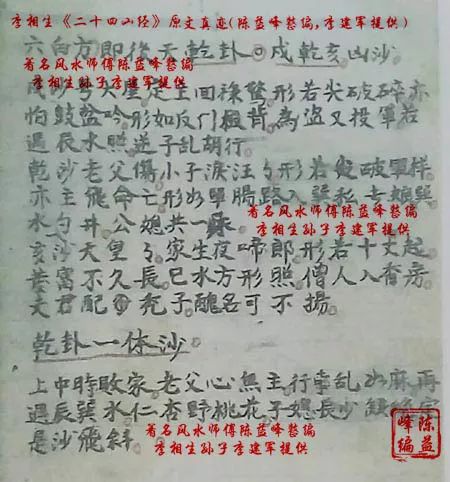 李相生《二十四山经》原文真迹(陈益峰整编,李建军提供)
六白方即後天乾卦 戌乾亥山沙
著名风水师傅陈益峰整编
李相生孙子李建军提供
形若尖破碎亦
怕鼓盆吟形如反门 背為盗又投軍若
遇辰水照逆子乱胡行
乾沙老父傷小子淚汪 形若 破軍样
亦主飛命亡形如單腸路入
水勺井公媳共一
著名风水师傅陈益峰整编
李相生孙子李建军提供
亥沙天皇 家生夜啼郎形若十丈起
富不久長巳水方形照僧人入香房
子醜名可不揚
乾卦一体沙
上中時敗家老父心無主行 乱如麻再
遇辰巽水仁杏野桃花子媳長少
是沙飛斜
著名风水师傅陈益峰整编
李相生孙子李建军提供
陈益峰编